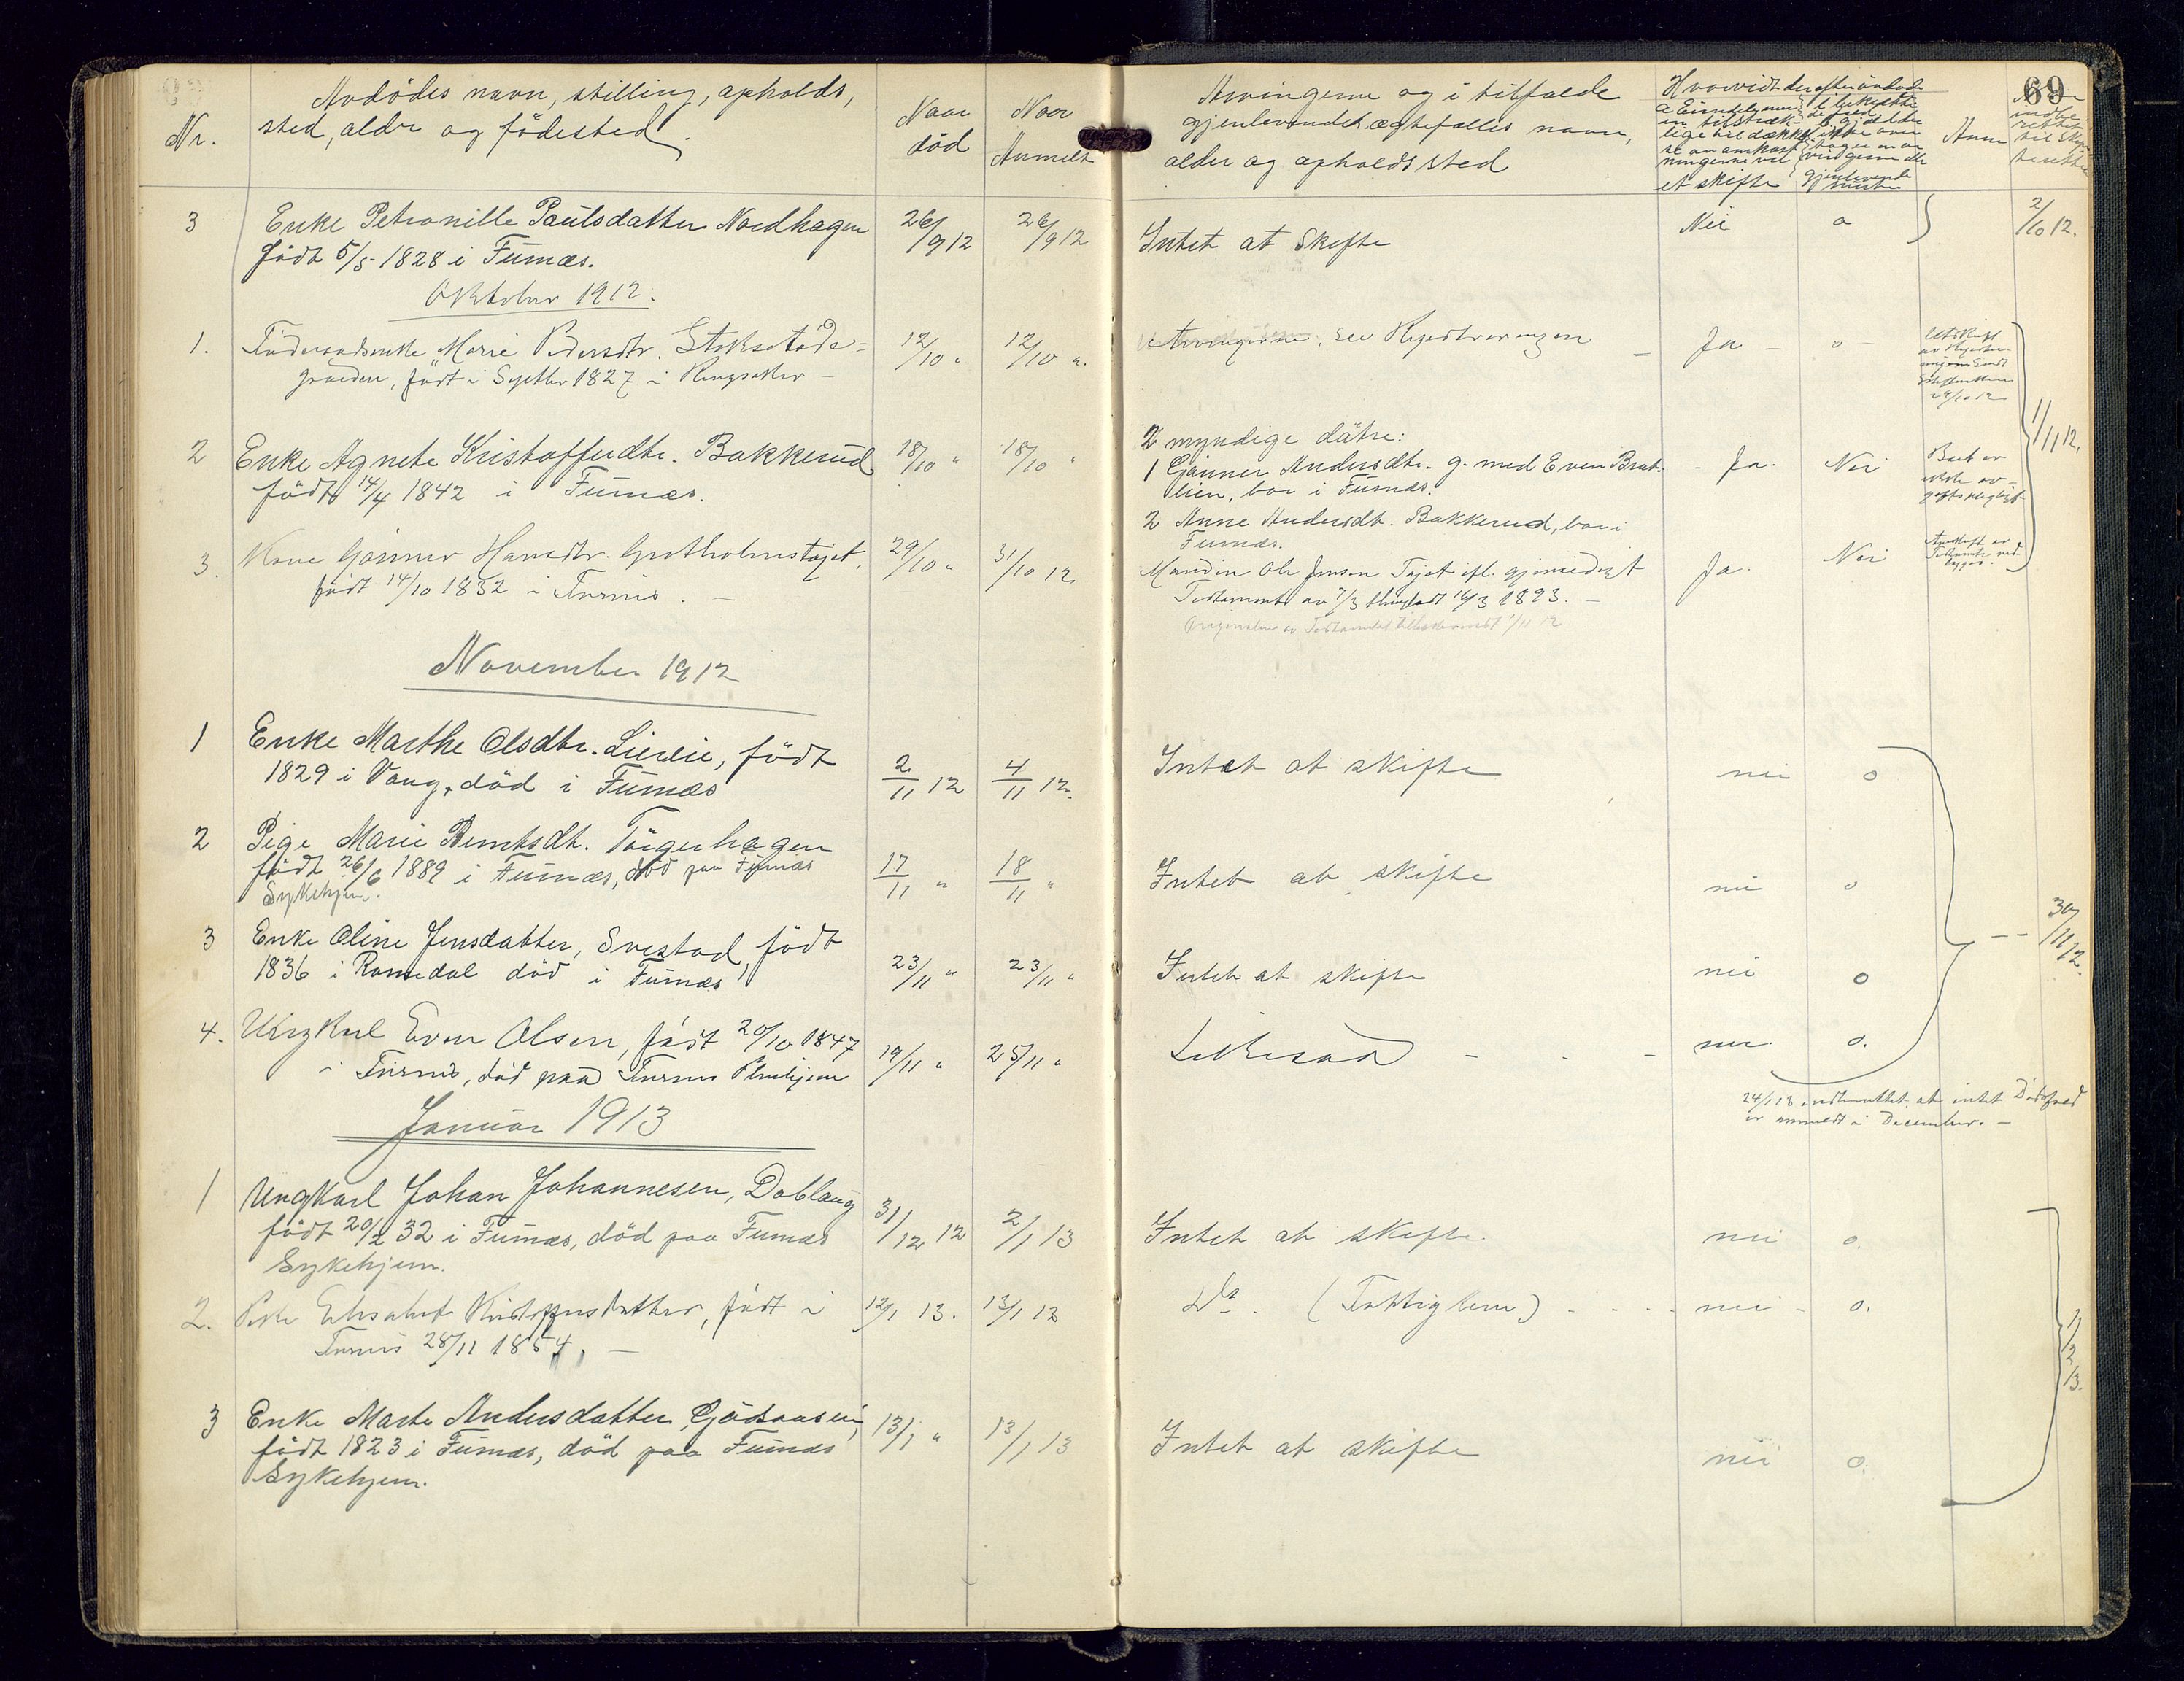 69
Nr.
Avdödes navn, stilling, opholds,
sted, alder og födested.
Naar
död
Naar
Anmelt
Arvingerne og i tilfælde
gjenlevende ægtefælles navn,
alder og opholdssted
Hvorvidt der efter avdøde
et skifte
gjenlevende
Anm
3
Enke Petronille Paulsdatter Nordhagen
født 5/5 1828 i Furnæs.
26/9 12
26/9 12
Intet at Skifte
Nei
o
2/10 12.
Oktober 1912.
1.
Föderaadsenke Marie Pedersdtr. Stoksstad-
födt i Septbr 1827 i Ringsaker
12/10 "
12/10 "
Arvingerne, see Registreringen
Ja
o
Utskrift
av Registre-
ringen sendt
29/10 12
2
Enke Agnete Kristofferdtr. Bakkerud
födt 14/4 1842 i Furnæs.
18/10 "
18/10 "
2 myndige døtre:
1 Gunner Andersdtr. g. med Even Brat-
lien, bor i Furnæs.
2 Anne Andersdtr. Bakkerud, bor i
Furnæs.
Ja.
Nei
Boet er
ikke av-
giftspligtigt
1/11 12.
3.
Kone Gunner Hansdtr.
født 14/10 1832 i Furnæs.
29/10 "
31/10 12
Manden Ole Jensen
Testamente av 7/3 thinglæst 16/3 1893.
Originalen av Testamentet 1/11 12
Ja.
Nei
November 1912
1
Enke Marthe Olsdtr. Lierlie, födt
1829 i Vang, död i Furnæs
2/11 12
4/11 12.
Intet at skifte
nei
o
2
Pige Marie Berntsdtr. Torgerhagen
födt 26/6 1889 i Furnæs, död paa Furnæs
Sykehjem.
17/11 "
18/11 "
Intet at skifte
nei
o
3
Enke Oline Jensdatter, Svestad, födt
1836 i Romedal död i Furnæs
23/11 "
23/11 "
Intet at skifte
nei
o
30/11 12.
4.
Ungkarl Even Olsen, født 20/10 1847
i Furnæs, död paa Furnæs Pleiehjem
19/11 "
25/11 "
Likesaa
nei
o.
24/1 13 indberettet at intet Dödsfald
er anmeldt i December.
Januar 1913
1
Ungkarl Johan Johannesen, Doblaug
födt 20/2 32 i Furnæs, död paa Furnæs
Sykehjem.
31/12 12
2/1 13
Intet at skifte.
nei
o.
2.
Elisabet Kristoffersdatter, født i
Furnæs 28/11 1854.
12/1 13.
13/1 13
Do. (Fattiglem)
nei
o.
1/2 13.
3
Enke Marte Andersdatter
födt 1823 i Furnæs, död paa Furnæs
Sykehjem.
13/1 "
13/1 13
Intet at skifte
nei
o.